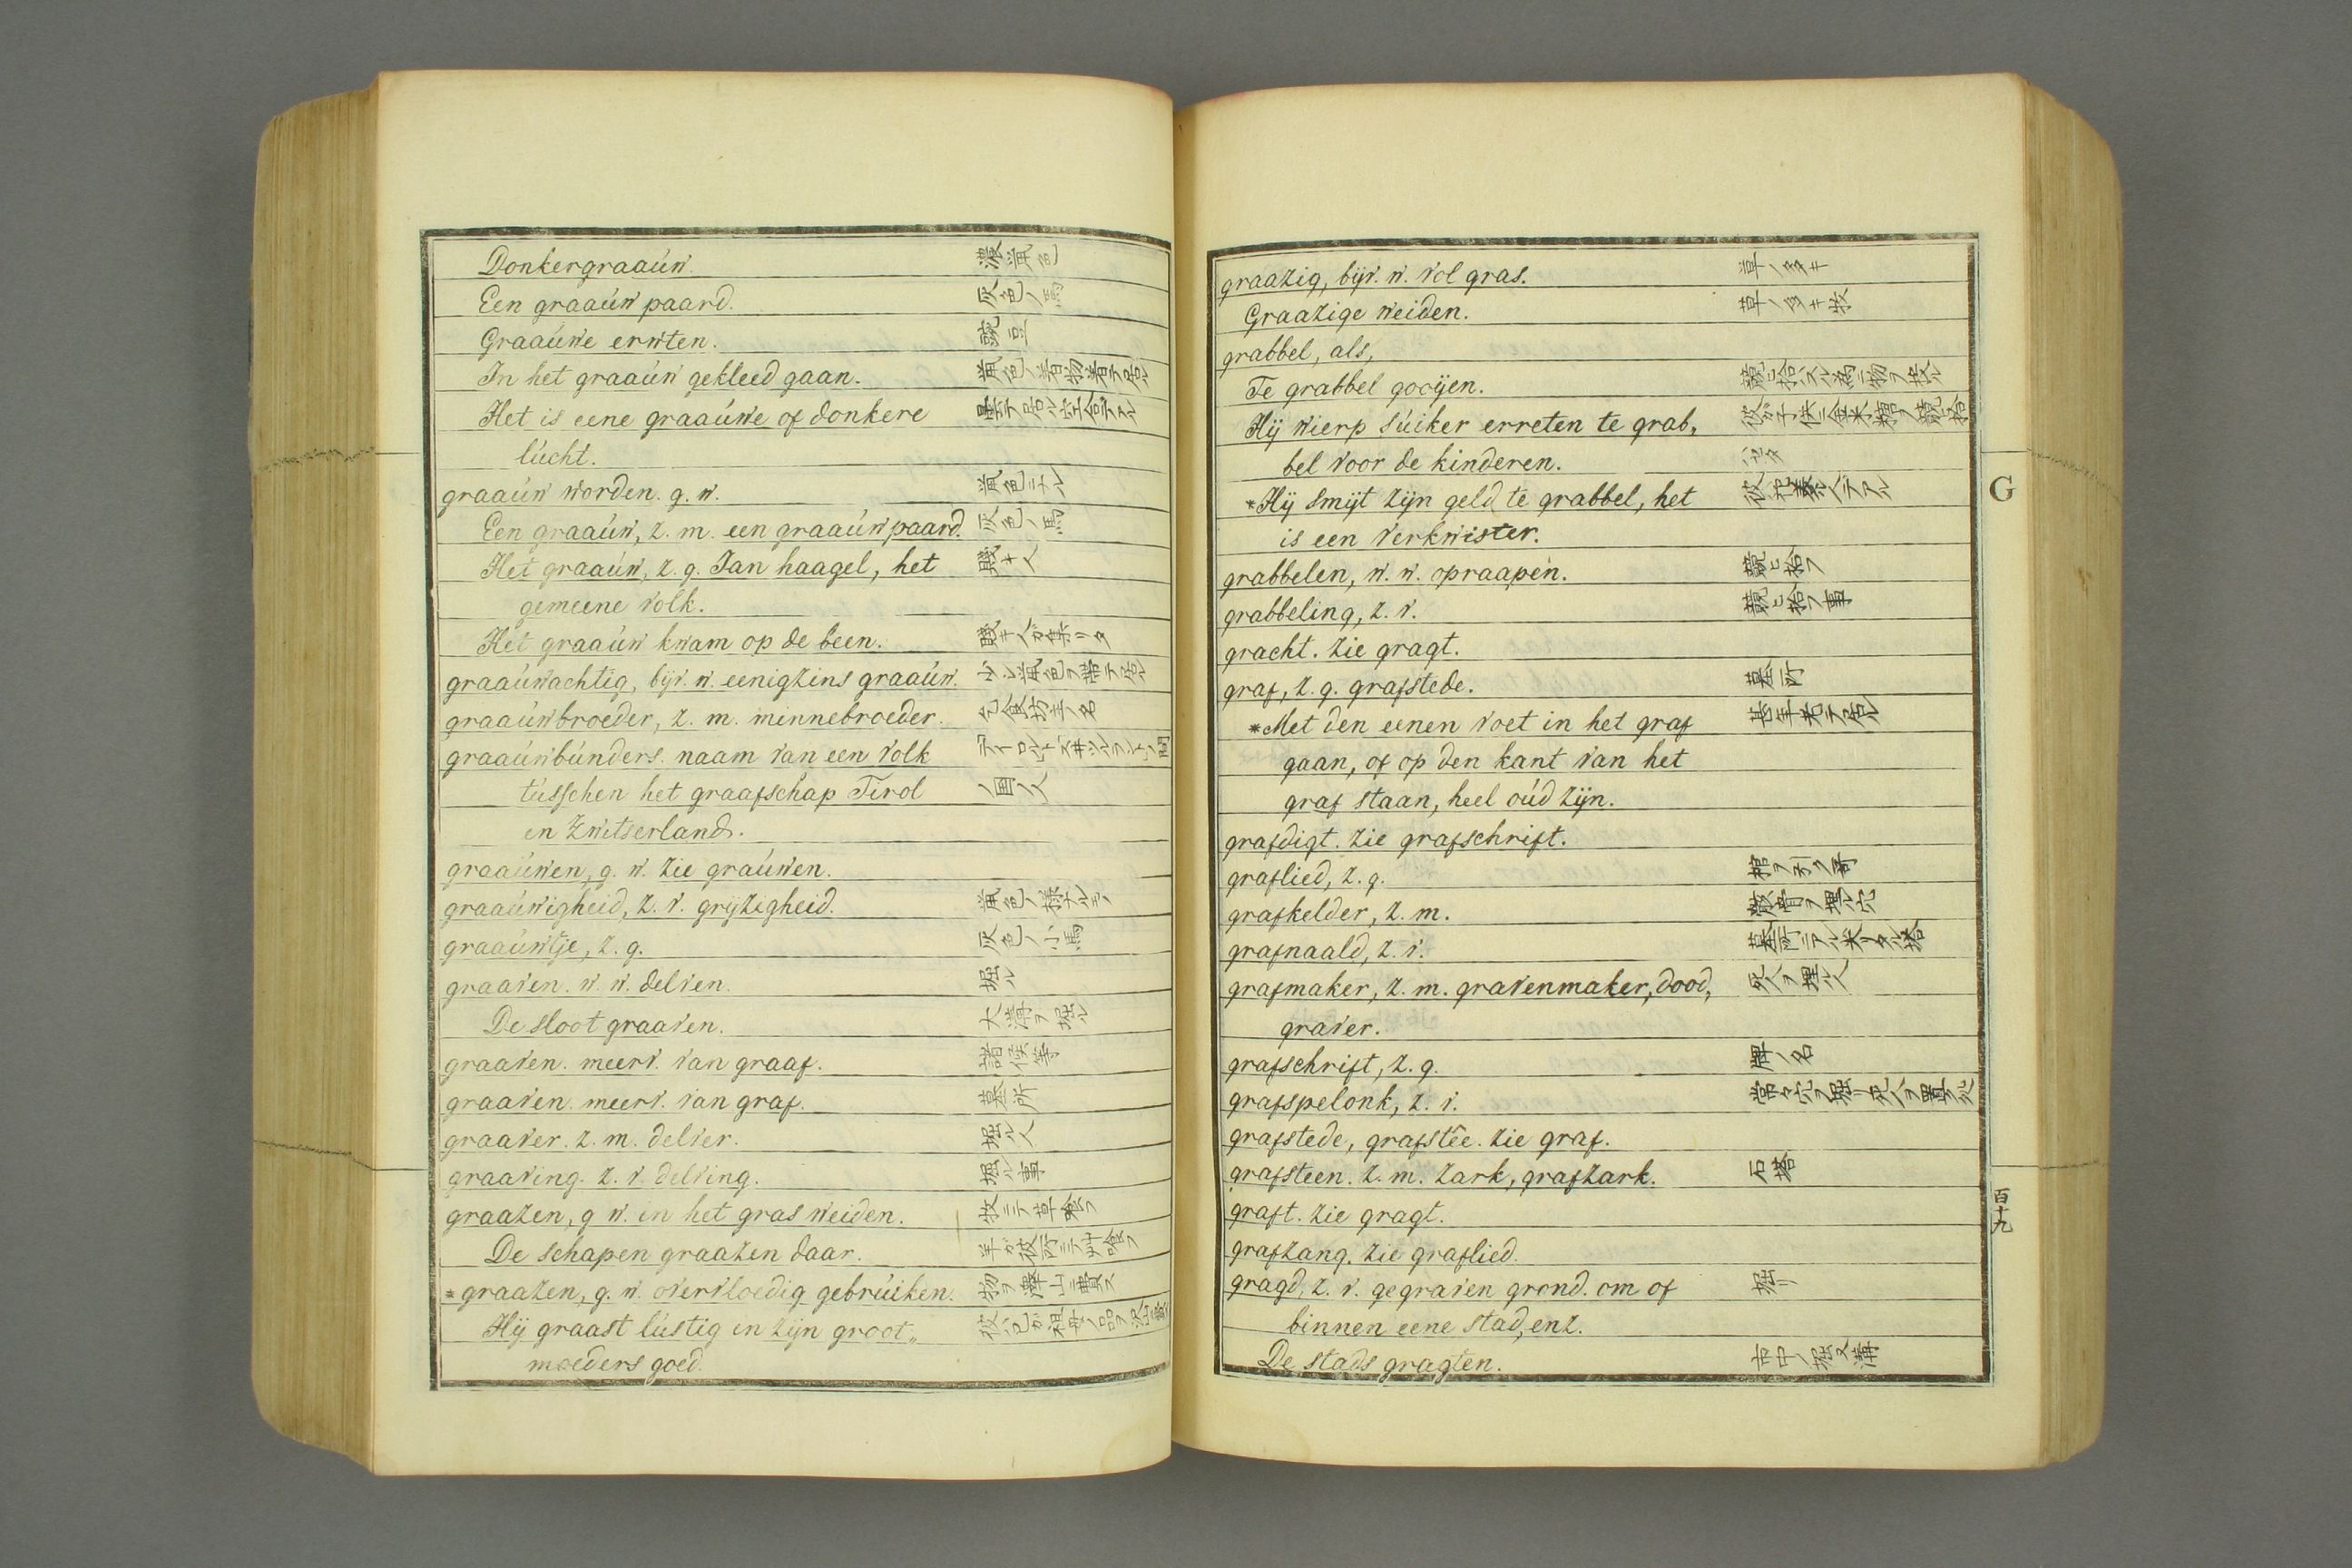 Donkergraaúw. 濃鼠色
Een graaúw paard. 灰色ノ馬
Graaúwe erwten. 豌豆
In het graaúw gekleed gaan. 鼠色ノ着物着テ居ル
Het is eene graaúwe of donkere
lúcht.
graaúw worden. g. w. 鼠色ニナル
Een graaúw, z. m. een graaúw paard. 灰色ノ馬
Het graaúw, z. g. Jan haagel, het 賤キ人
gemeene volk.
Het graaúw kwam op de been. 賤キ人ガ集リタ
graaúwachtig, bijv. w. eenigzins graaúw. 少シ鼠色ヲ帯テ居ル
graaúwbroeder, z. m. minnebroeder. 乞食坊主ノ名
graaúwbúnders. naam van een volk
tússchen het graafschap Tirol ノ国ノ人
en Zwitserland.
graaúwen, g. w. zie graúwen.
graaúwigheid, z. v. grijzigheid.
graaúwtje, z. g. 灰色ノ小馬
graaven. w. w. delven. 堀ル
De sloot graaven. 大溝ヲ堀ル
graaven. meerv. van graaf. 諸侯等
graaven. meerv. van graf. 墓所
graaver. z. m. delver. 堀ル人
graaving. z. v. delving. 堀ル事
graazen, g w. in het gras weiden. 牧ニテ草喰フ
De schapen graazen daar. 羊ガ彼所ニテ艸喰フ
*graazen, g. w. overvloedig gebrúiken. 物ヲ澤山ニ費ス
Hij graast lústig in zijn groot„
moeders goed.
graazig, bijv. w. vol gras. 草ノ多キ
Graazige weiden. 草ノ多キ牧
grabbel, als,
Te grabbel gooijen. 競ヒ拾ハスル為ニ物ヲ投ル
Hij wierp súiker erreten te grab, 彼ガ子供ニ金米糖ヲ競ヒ拾
bel voor de kinderen. ハセタ
*Hij smijt zijn geld te grabbel, het
is een verkwister.
grabbelen, w. w. opraapen. 競ヒ拾フ
grabbeling, z. v. 競ヒ拾フ事
gracht. zie gragt.
graf, z. g. grafstede. 墓所
*Met den eenen voet in het graf 甚年老テ居ル
gaan, of op den kant van het
graf staan, heel oúd zijn.
grafdigt. zie grafschrift.
graflied, z. g. 棺ヲ引ク哥
grafkelder, z. m.
grafnaald, z. v. 墓所ニアル尖リタル塔
grafmaker, z. m. gravenmaker, dood, 死人ヲ埋ル人
graver.
grafschrift, z. g. 牌ノ名
grafspelonk, z. v.
grafstede, grafstêe. zie graf.
grafsteen. z. m. zark, grafzark. 石塔
graft. zie gragt.
grafzang. zie graflied.
gragd, z. v. gegraven grond. om of 堀リ
binnen eene stad, enz.
De stads gragten. 市中ノ堀又溝
G
百十九